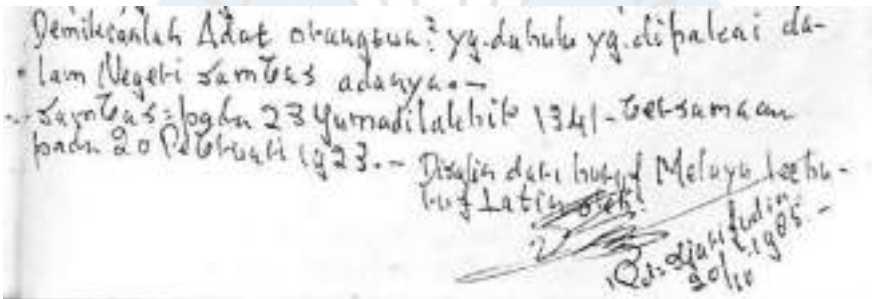 Demikianlah Adat orangtua² yg. dahulu yg. dipakai da-
lam Negeri Sambas adanya.-
Sambas: pada 23 Yumadilakhir 1341 - bersamaan
pada 20 Pebruari 1923. - Disalin dari huruf Melayu kehu-
ruf Latin oleh:
20/10 - 1985 -